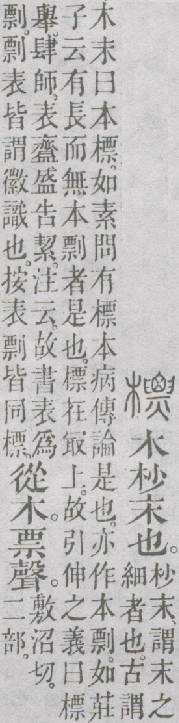 標木杪末也。杪末、謂末之
細者也。古謂
木末曰本標。如素問有標本病傳論是也。亦作本剽。如莊
子云有長而無本剽者是也。標在㝡上。故引伸之義曰標
舉。肆師。表齍盛告絜。注云。故書表爲
剽。剽表皆謂徽識也。按表剽皆同標。
從木。票聲。敷沼切。
二部。